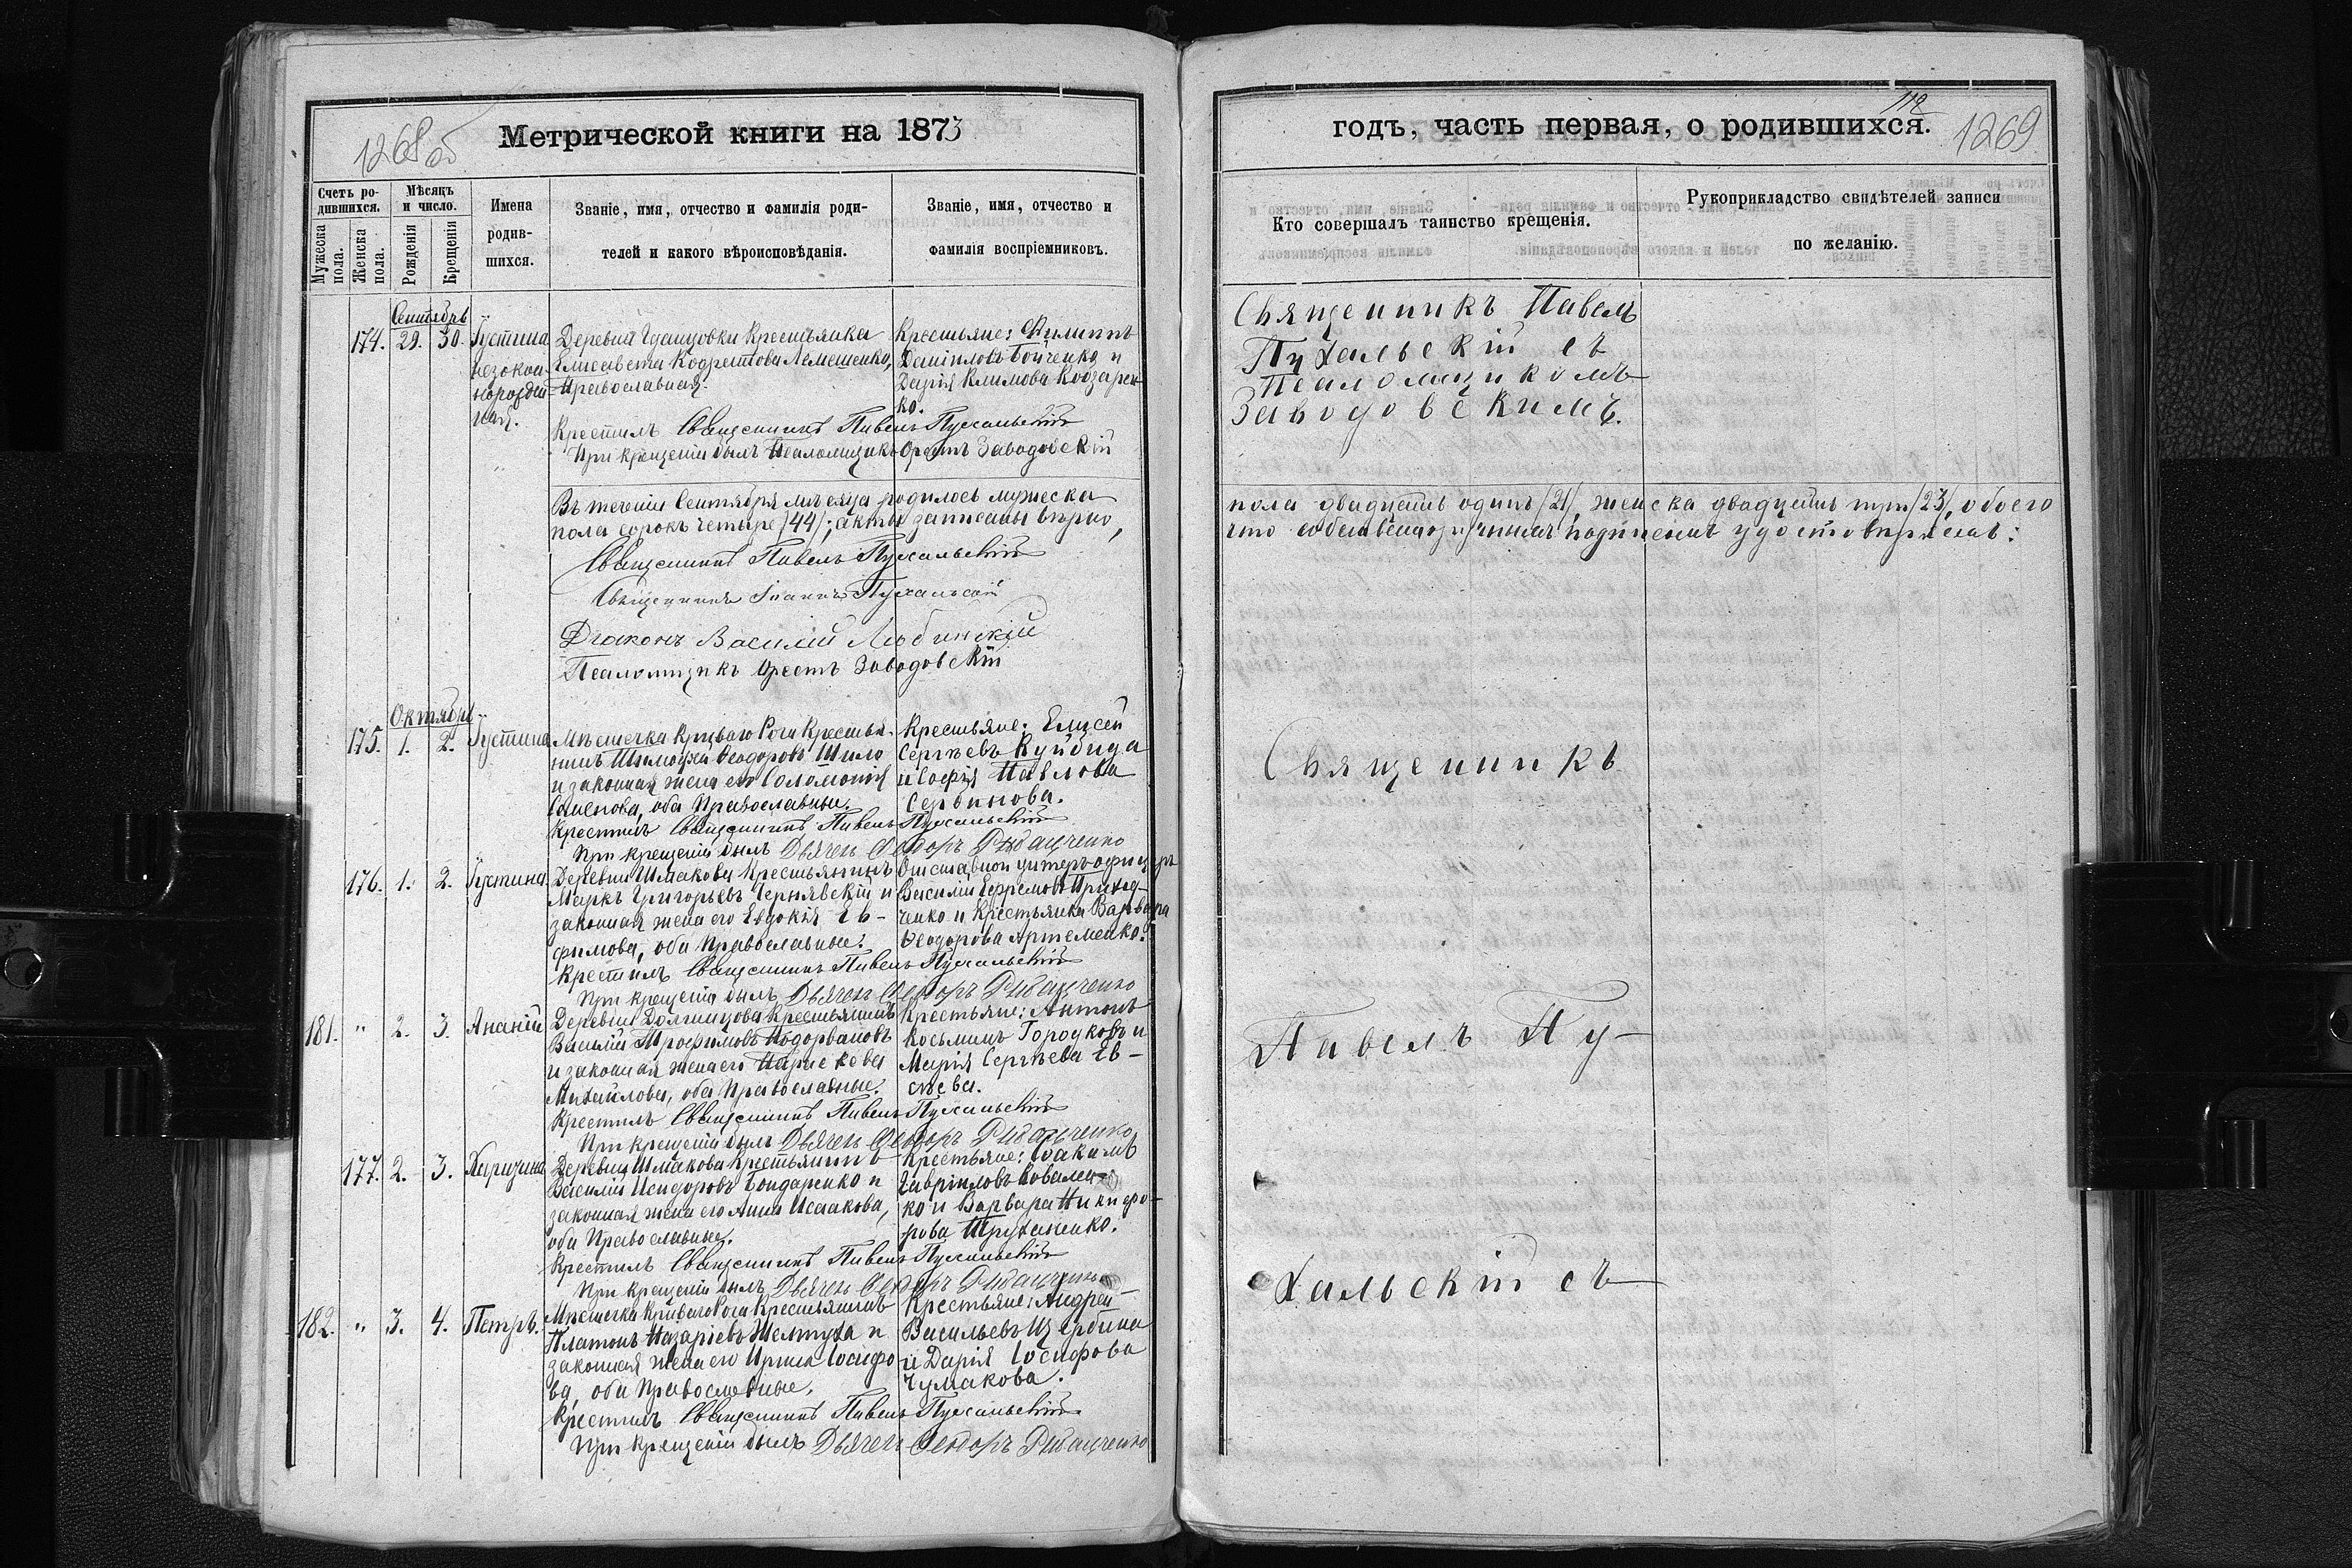 1268 об
Метрической книги на 1873
Счетъ ро-
дившихся.
Мужеска пола.
Женска пола.
Мѣсяцъ и число.
Рожденія
Крещенія
Имена родив-
шихся.
Званіе, имя, отчество и фамилія роди-
телей и какого вѣроисповѣданія.
Званіе, имя, отчество и
фамилія воспріемниковъ.
Сентябрь
174. 29. 30. Іустина
незакон-
норожден-
ная.
Деревни Крестьянка
Елисавета Лемешенко,
Православная.
Крестьяне: Филиппъ
Даніиловъ Бойченко и
Дарія Климова Кобзарен-
ко.
Крестилъ Священникъ Павелъ Пухальскій
При крещеніи былъ Псаломщикъ Орестъ Заводовскій
Въ теченіи Сентября мѣсяца родилось мужеска
пола сорокъ четыре /44/; акты записаны вѣрно,
Священникъ Павелъ Пухальскій
Священникъ Іоаннъ Пухальскій
Діаконъ Василій Любинскій
Псаломщикъ Орестъ Заводовскій
Октябрь
175. 1. 2. Іустина
Мѣстечка Криваго Рога Крестья-
нинъ Тимофей Ѳеодоровъ Шило
и законная жена его Соломонія
Семенова, оба Православные.
Крестьяне: Елисей
Сергѣевъ Куйбида
и Софія Павлова
Сербинова.
Крестилъ Священникъ Павелъ Пухальскій
При крещеніи былъ Дьячекъ Ѳеодоръ
176. 1. 2. Іустина
Деревни Шмакова Крестьянинъ
Маркъ Григорьевъ Чернявскій и
законная жена его Евдокія Ев-
фимова, оба Православные.
Отставной унтеръ-офицеръ
Василій Ефремовъ Приход-
ченко и Крестьянка Варвара
Ѳеодорова Артеменко.
Крестилъ Священникъ Павелъ Пухальскій
При крещеніи былъ Дьячекъ Ѳеодоръ
181. " 2. 3. Ананій
Деревни Долгинцова Крестьянинъ
Василій Трофимовъ Подорвановъ
и законная жена его Параскева
Михайлова, оба Православные.
Крестьяне: Антонъ
Косьминъ Городковъ и
Марія Сергѣева Ев-
сѣева.
Крестилъ Священникъ Павелъ Пухальскій
При крещеніи былъ Дьячекъ Ѳеодоръ
177. 2. 3. Харитина
Деревни Шмакова Крестьянинъ
Василій Исидоровъ Бондаренко и
законная жена его Анна Исаакова,
оба Православные.
Крестьяне: Іоакимъ
Гавріиловъ Ковален-
ко и Варвара Никифо-
рова Труханенко.
Крестилъ Священникъ Павелъ Пухальскій
При крещеніи былъ Дьячекъ Ѳеодоръ
182. " 3. 4. Петръ.
Мѣстечка Криваго Рога Крестьянинъ
Платонъ Назаріевъ Желтуха и
законная жена его Ирина Іосифо-
ва, оба Православные.
Крестьяне: Андрей
Васильевъ Щербина
и Дарія Іосифова
Чумакова.
Крестилъ Священникъ Павелъ Пухальскій
При крещеніи былъ Дьячекъ Ѳеодоръ
годъ, часть первая, о родившихся.
1269
Кто совершалъ таинство крещенія.
Рукоприкладство свидѣтелей записи
по желанію.
Священникъ Павелъ
Пухальскій съ
Псаломщикомъ
Заводовскимъ.
пола двадцать одинъ /21/, женска двадцать три /23/, обоего
что собственноручнымъ подписомъ удостовѣряемъ:
Священникъ
Павелъ Пу-
хальскій съ